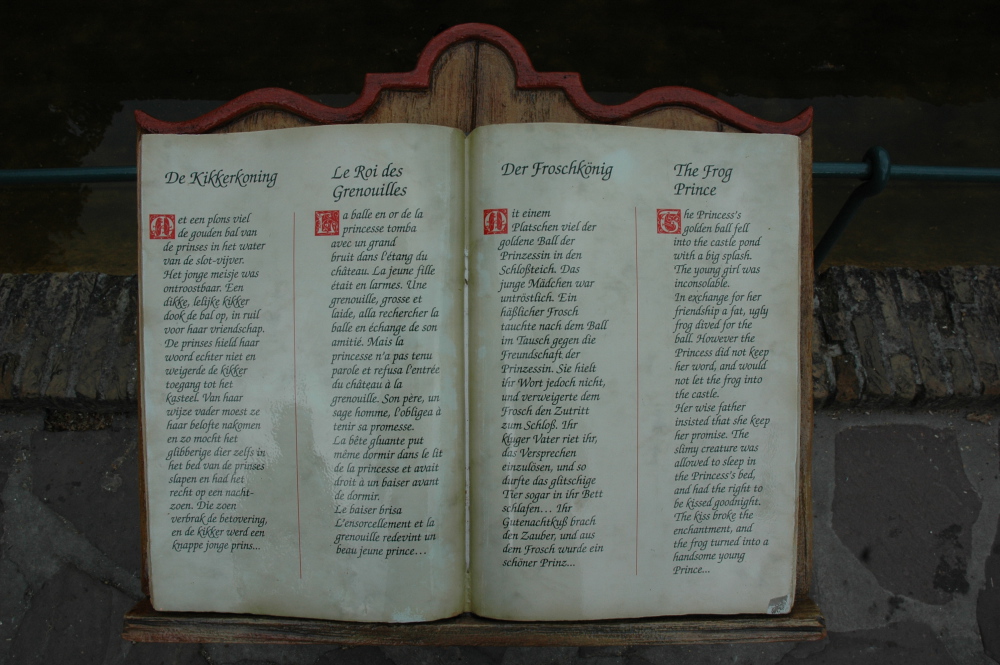 De Kikkerkoning
Met een plons viel
de gouden bal van
de prinses in het water
van de slot-vijver.
Het jonge meisje was
ontroostbaar. Een
dikke, lelijke kikker
dook de bal op, in ruil
voor haar vriendschap.
De prinses hield haar
woord echter niet en
weigerde de kikker
toegang tot het
kasteel. Van haar
wijze vader moest ze
haar belofte nakomen
en zo mocht het
glibberige dier zelfs in
het bed van de prinses
slapen en had het
recht op een nacht-
zoen. Die zoen
verbrak de betovering,
en de kikker werd een
knappe jonge prins...
Le Roi des
Grenouilles
La balle en or de la
princesse tomba
avec un grand
bruit dans l'étang du
château. La jeune fille
était en larmes. Une
grenouille, grosse et
laide, alla rechercher la
balle en échange de son
amitié. Mais la
princesse n'a pas tenu
parole et refusa l'entrée
du château à la
grenouille. Son père, un
sage homme, l'obligea à
tenir sa promesse.
La bête gluante put
même dormir dans le lit
de la princesse et avait
droit à un baiser avant
de dormir.
Le baiser brisa
L'ensorcellement et la
grenouille redevint un
beau jeune prince...
Der Froschkönig
Mit einem
Platschen viel der
goldene Ball der
Prinzessin in den
Schloßteich. Das
junge Mädchen war
untröstlich. Ein
häßlicher Frosch
tauchte nach dem Ball
im Tausch gegen die
Freundschaft der
Prinzessin. Sie hielt
ihr Wort jedoch nicht,
und verweigerte dem
Frosch den Zutritt
zum Schloß. Ihr
kluger Vater riet ihr,
das Versprechen
einzulösen, und so
durfte das glitschige
Tier sogar in ihr Bett
schlafen... Ihr
Gutenachtkuß brach
den Zauber, und aus
dem Frosch wurde ein
schöner Prinz...
The Frog
Prince
The Princess's
golden ball fell
into the castle pond
with a big splash.
The young girl was
inconsolable.
In exchange for her
friendship a fat, ugly
frog dived for the
ball. However the
Princess did not keep
her word, and would
not let the frog into
the castle.
Her wise father
insisted that she keep
her promise. The
slimy creature was
allowed to sleep in
the Princess's bed,
and had the right to
be kissed goodnight.
The kiss broke the
enchantment, and
the frog turned into a
handsome young
Prince...